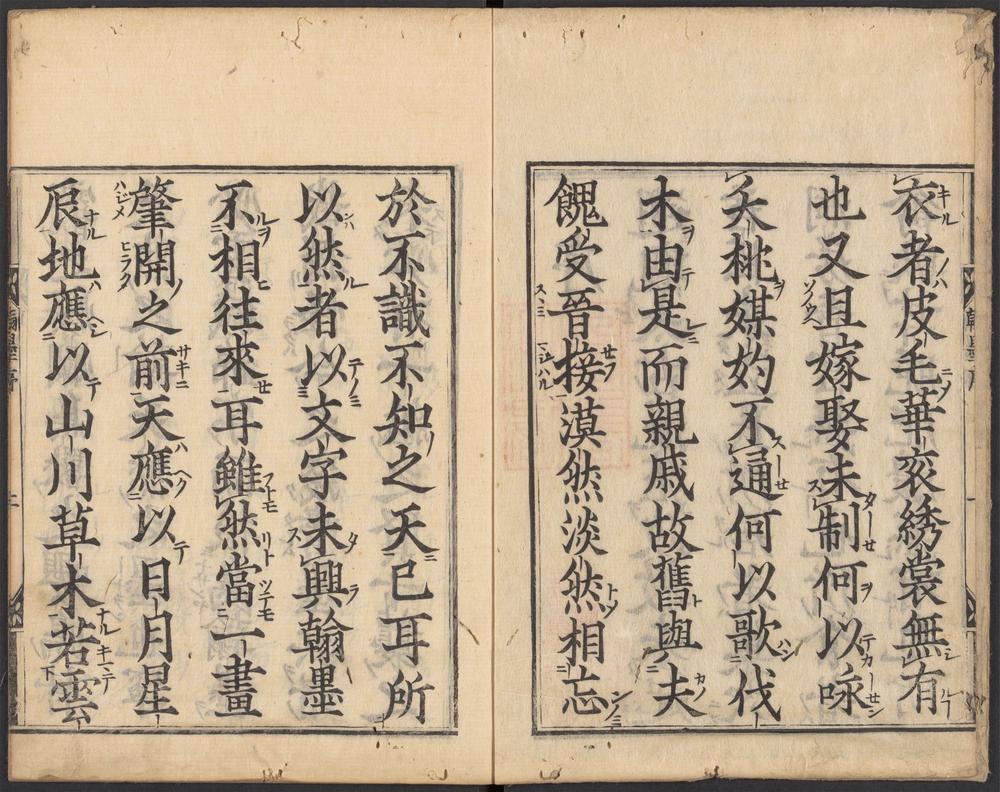 衣者皮毛華衮綉裳無有
也又且嫁娶未制何以咏
夭桃媒妁不通何以歌伐
木由是而親戚故舊與夫
餽受晉接漠然淡然相忘
於不識不知之天已耳所
以然者以文字未興翰墨
不相往來耳雖然當一畫
肇開之前天應以日月星
辰地應以山川草木若雲